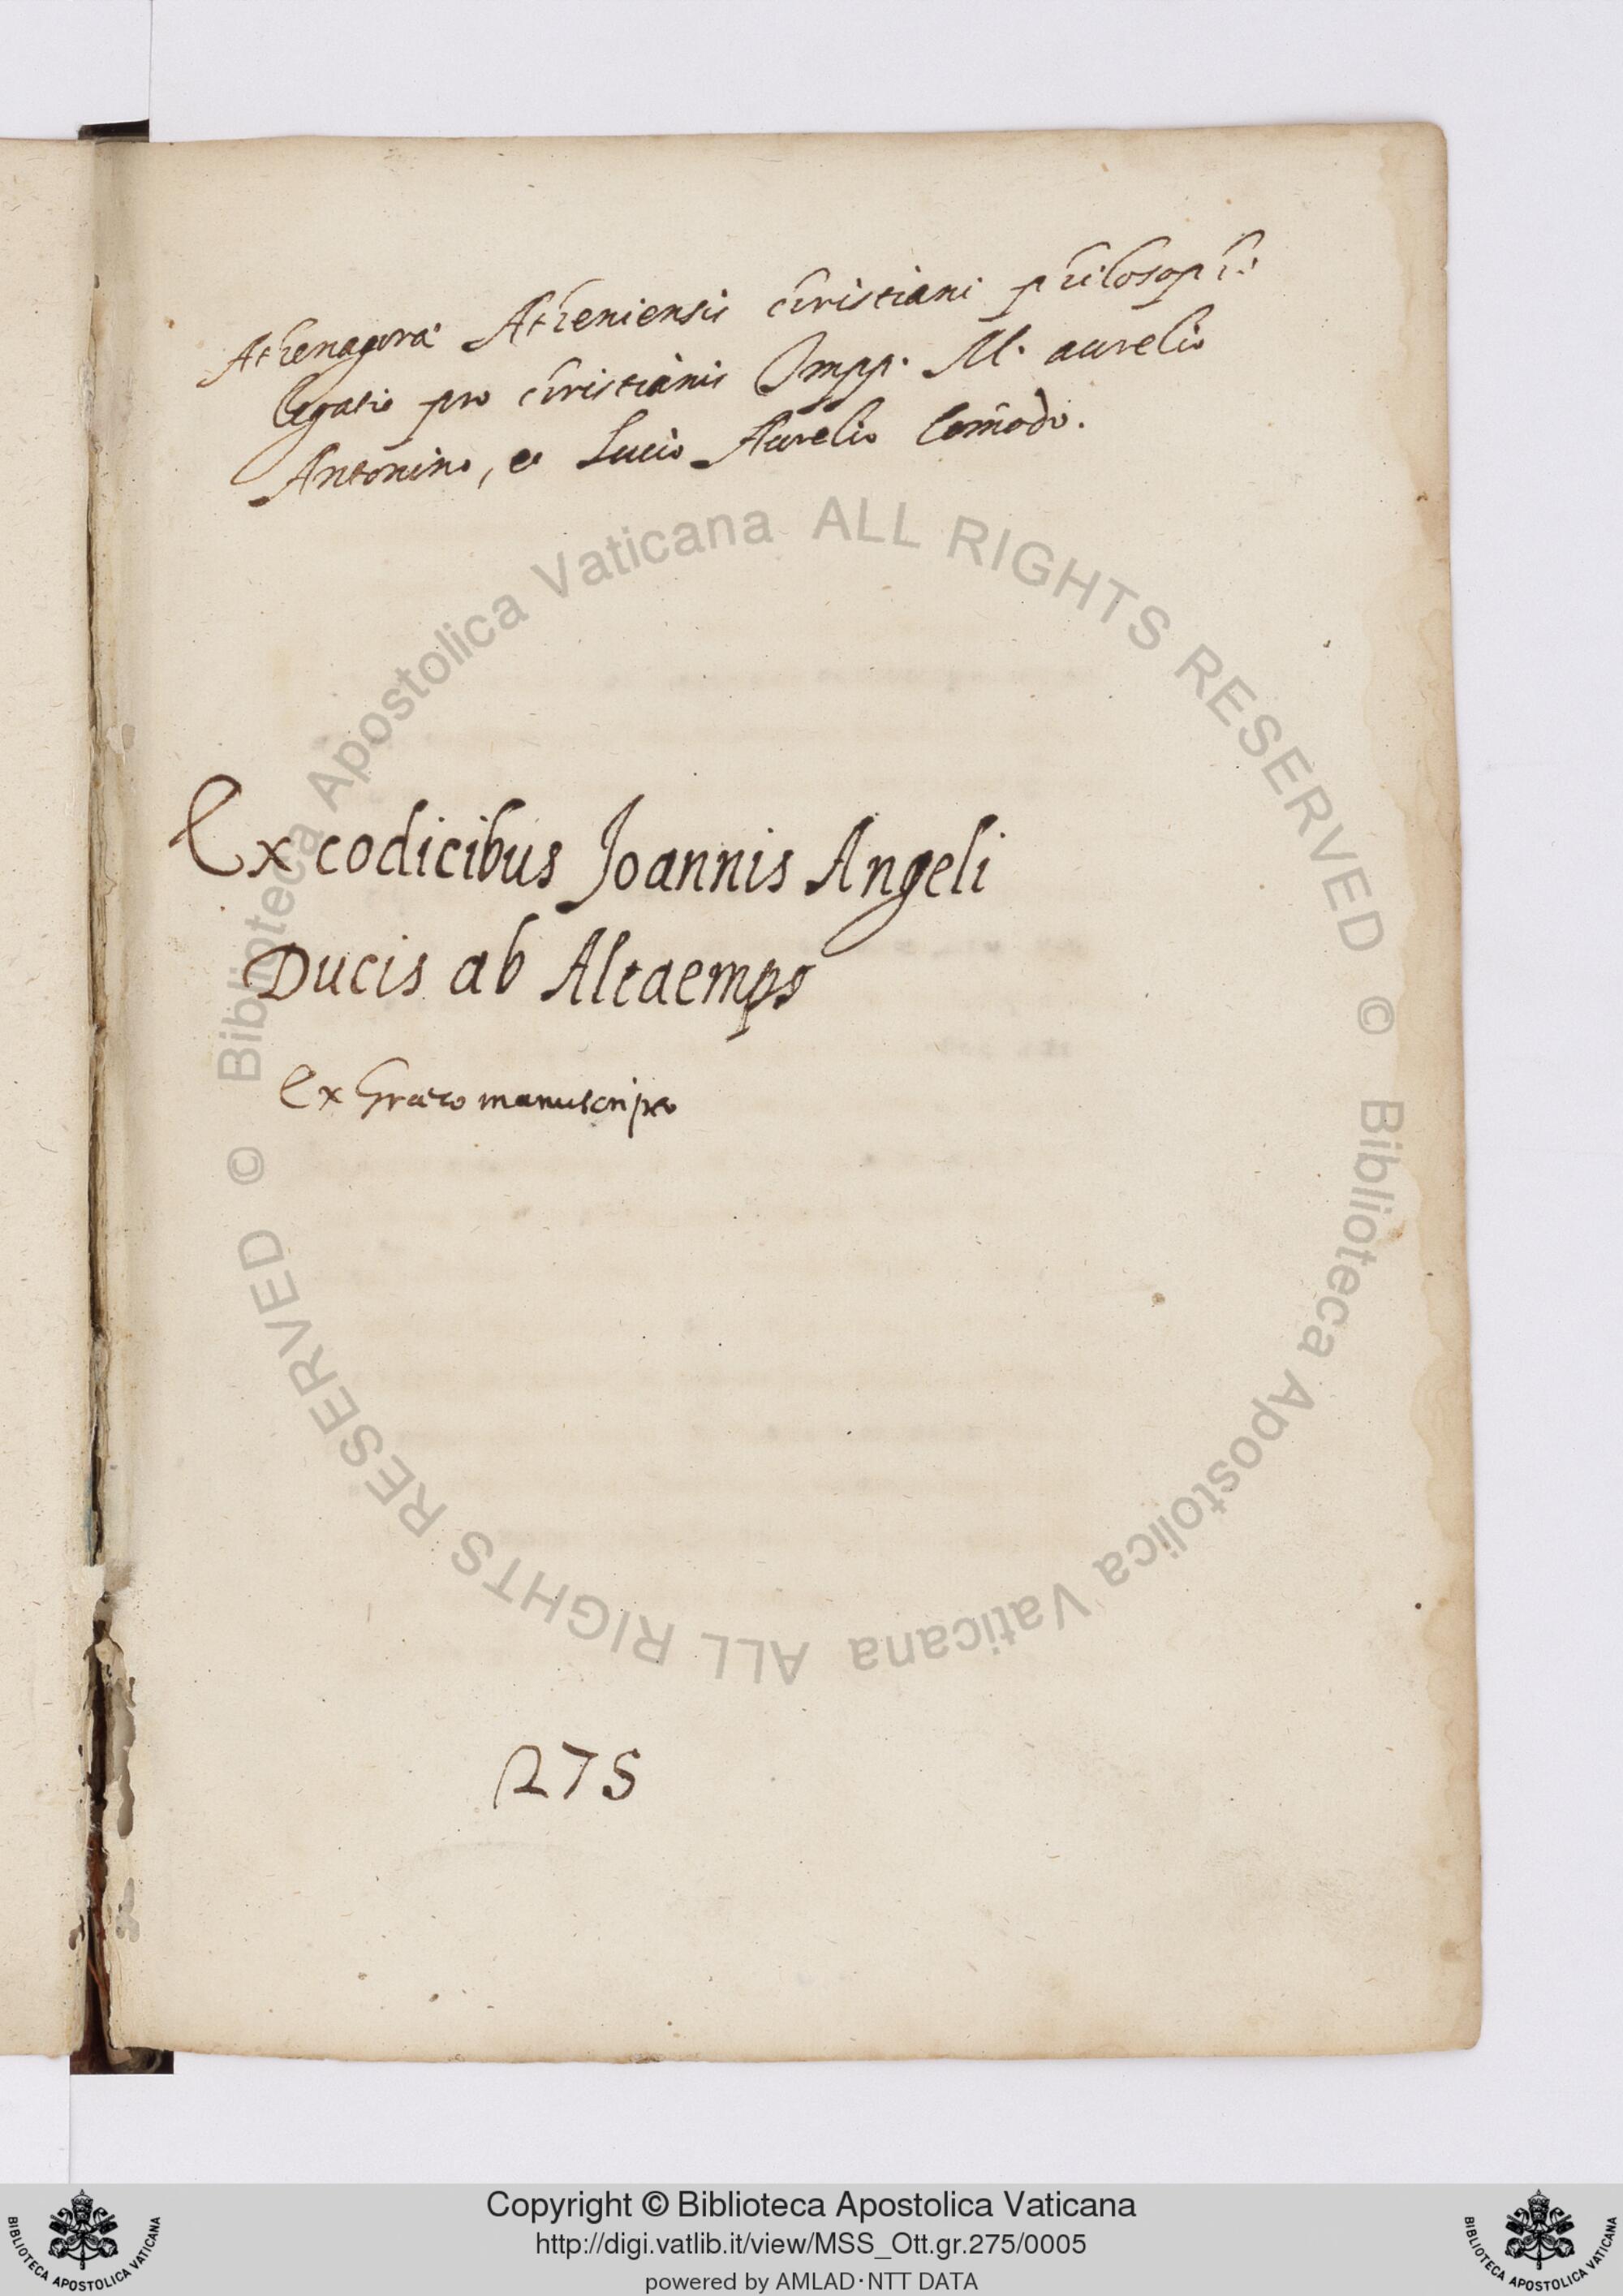 Athenagorae Atheniensis christiani philosophi
legatio pro christianis Impp. M. aurelio
Antonino, et Lucio Aurelio Com̄odo.
Ex codicibus Joannis Angeli
Ducis ab Altaemps
Ex Graeco manuscripto
275
© Biblioteca Apostolica Vaticana ALL RIGHTS RESERVED
© Biblioteca Apostolica Vaticana ALL RIGHTS RESERVED
BIBLIOTECA APOSTOLICA VATICANA
Copyright © Biblioteca Apostolica Vaticana
http://digi.vatlib.it/view/MSS_Ott.gr.275/0005
powered by AMLAD·NTT DATA
BIBLIOTECA APOSTOLICA VATICANA